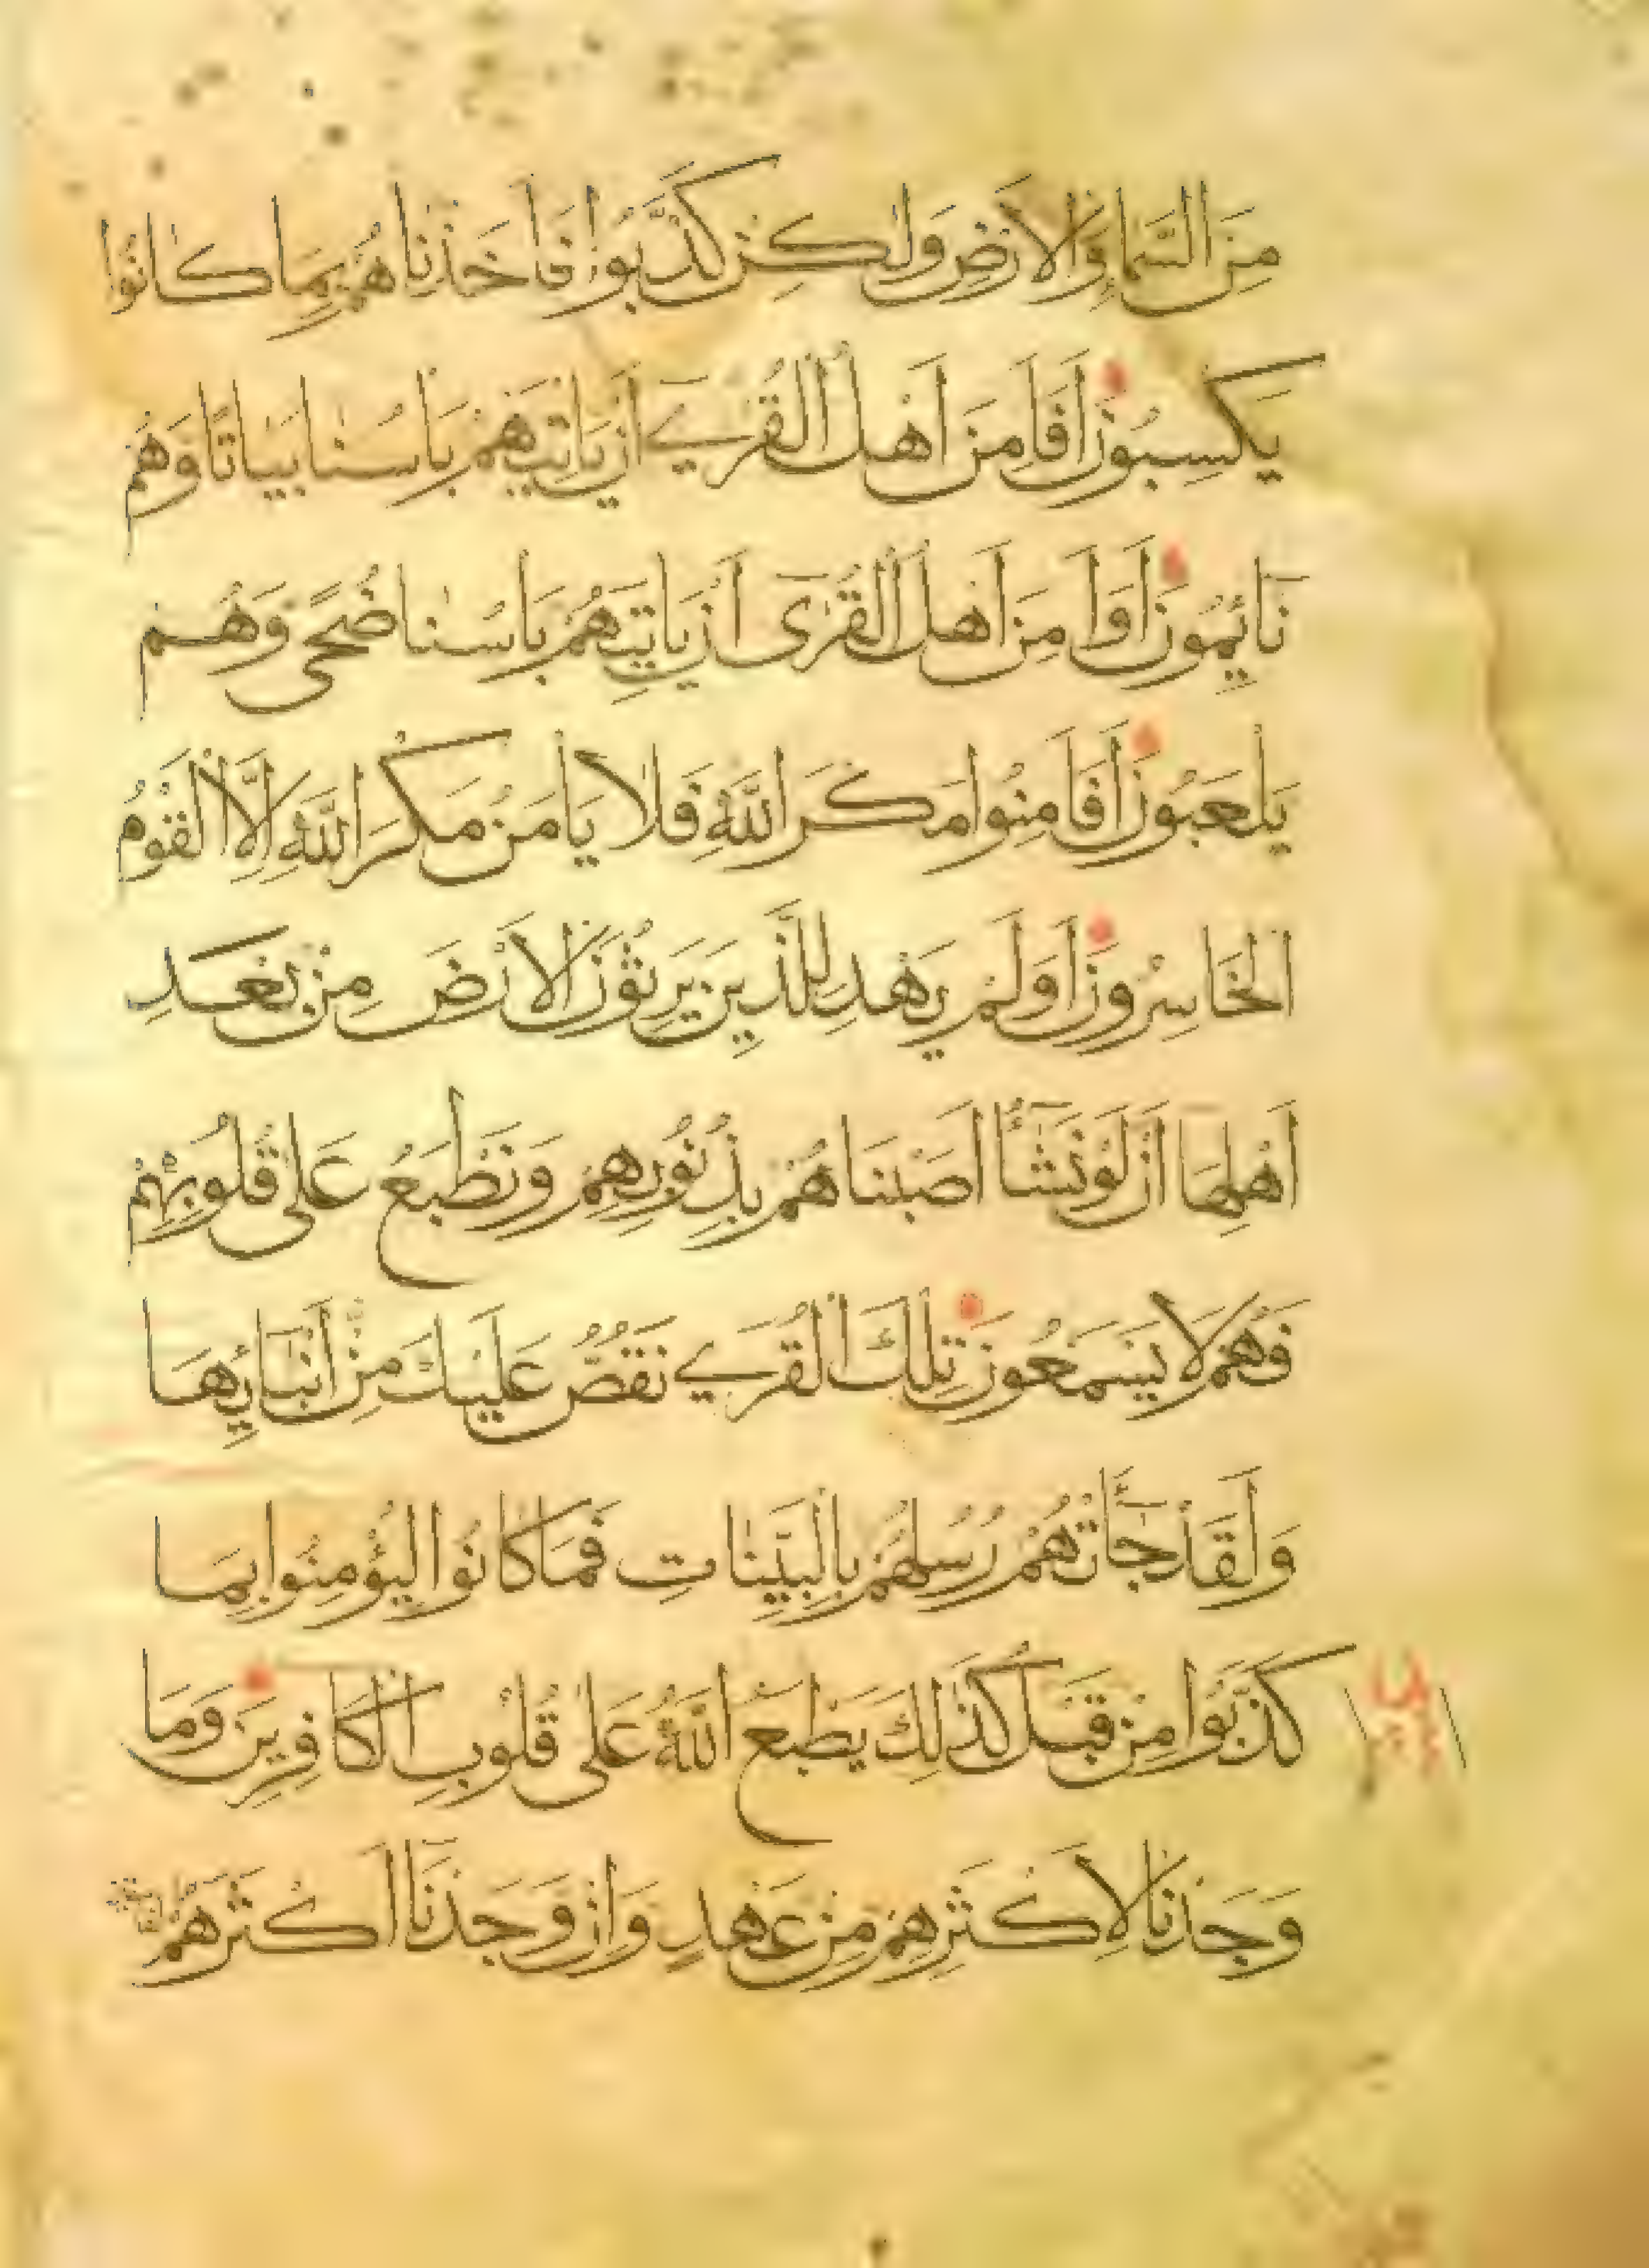 مِنَ السَّمَاءِ وَالْاَرْضِ وَلٰكِنْ كَذَّبُوا فَاَخَذْنَاهُمْ بِمَا كَانُوا
يَكْسِبُونَ اَفَاَمِنَ اَهْلُ الْقُرٰى اَنْ يَاْتِيَهُمْ بَاْسُنَا بَيَاتًا وَهُمْ
نَائِمُونَ اَوَاَمِنَ اَهْلُ الْقُرٰى اَنْ يَاْتِيَهُمْ بَاْسُنَا ضُحًى وَهُمْ
يَلْعَبُونَ اَفَاَمِنُوا مَكْرَ اللّٰهِ فَلَا يَاْمَنُ مَكْرَ اللّٰهِ اِلَّا الْقَوْمُ
الْخَاسِرُونَ اَوَلَمْ يَهْدِ لِلَّذِينَ يَرِثُونَ الْاَرْضَ مِنْ بَعْدِ
اَهْلِهَا اَنْ لَوْ نَشَاءُ اَصَبْنَاهُمْ بِذُنُوبِهِمْ وَنَطْبَعُ عَلٰى قُلُوبِهِمْ
فَهُمْ لَا يَسْمَعُونَ تِلْكَ الْقُرٰى نَقُصُّ عَلَيْكَ مِنْ اَنْبَائِهَا
وَلَقَدْ جَاءَتْهُمْ رُسُلُهُمْ بِالْبَيِّنَاتِ فَمَا كَانُوا لِيُؤْمِنُوا بِمَا
كَذَّبُوا مِنْ قَبْلُ كَذٰلِكَ يَطْبَعُ اللّٰهُ عَلٰى قُلُوبِ الْكَافِرِينَ وَمَا
وَجَدْنَا لِاَكْثَرِهِمْ مِنْ عَهْدٍ وَاِنْ وَجَدْنَا اَكْثَرَهُمْ